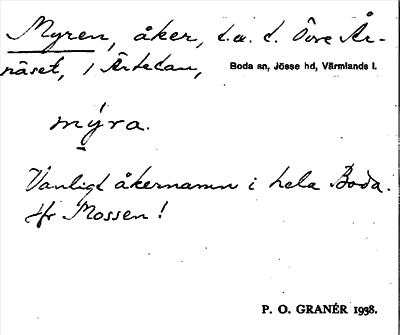 Myren, åker, t.a. t. Övre Är-
näset, i Ärtetan, Boda sn, Jösse hd, Värmlands l.
mýra.
Vanligt åkernamn i hela Boda.
Jfr Mossen!
P. O. GRANÉR 1938.